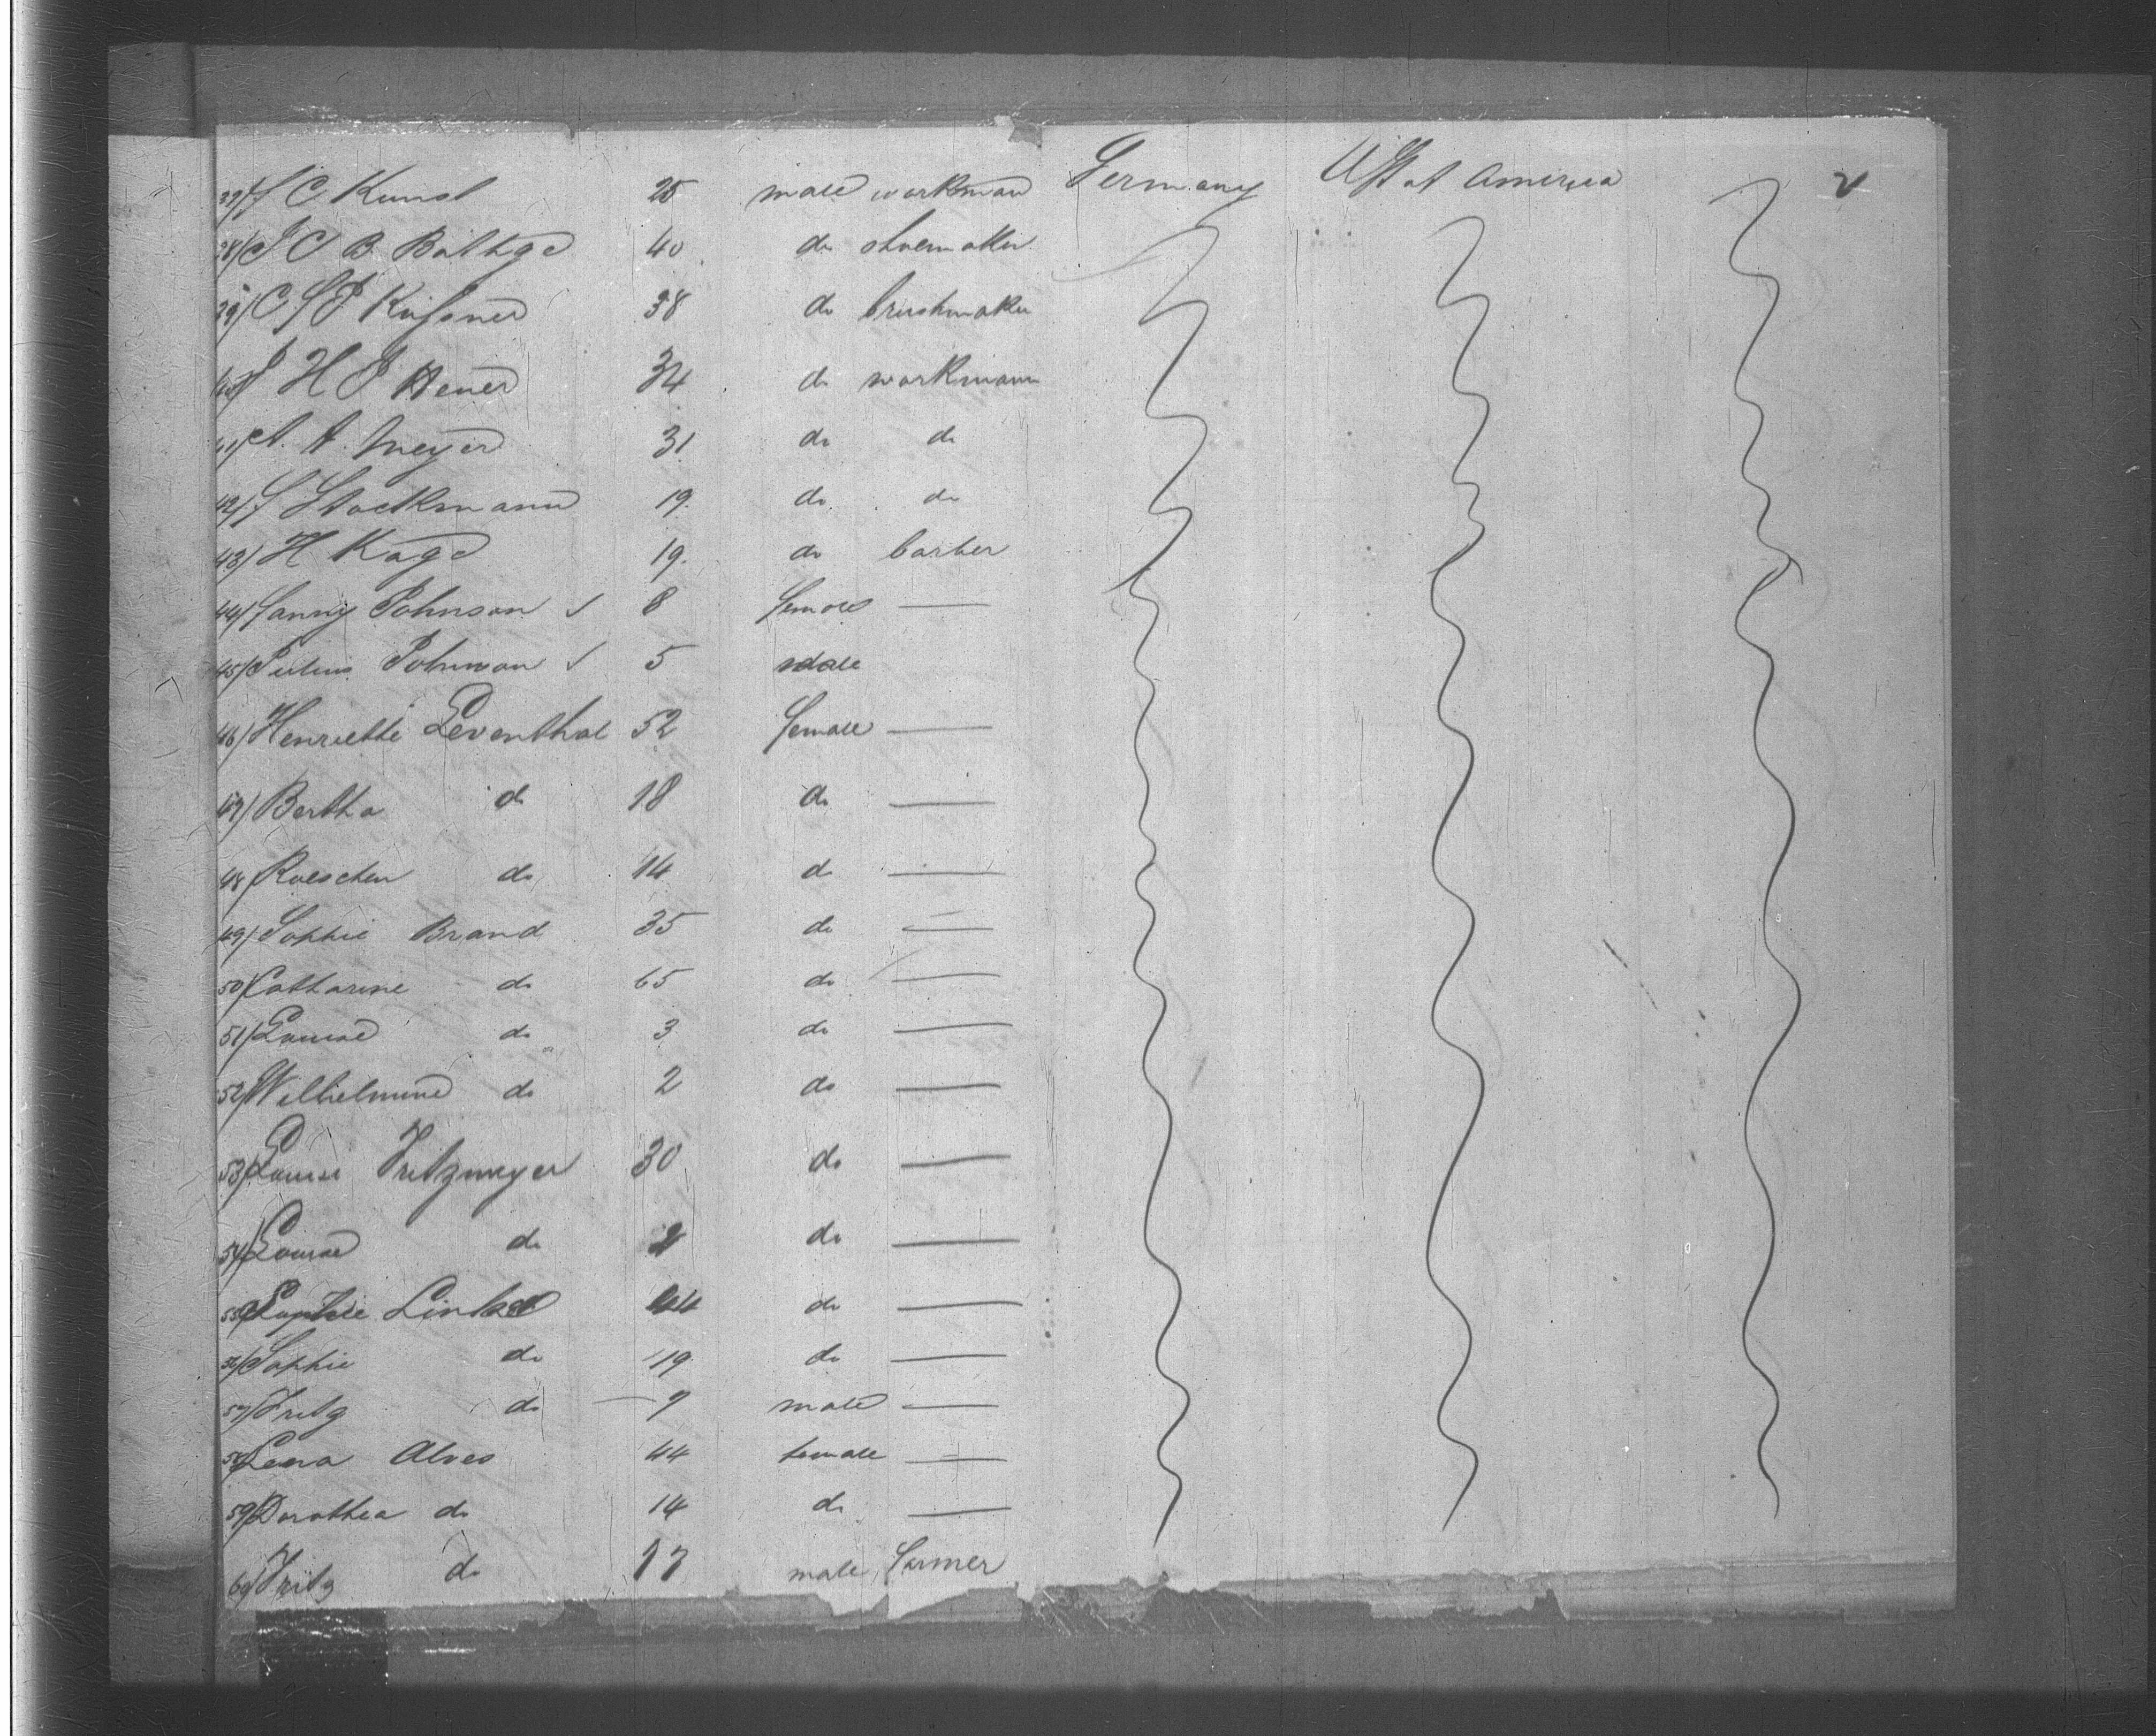 37/ J C Kunst 25 male workman Germany USt of America
38/ J C B Bathge 40 do shoemaker
39/ C F J Kussner 38 do brushmaker
40/ J H J Heuer 34 do workmann
41/ A. A. Meyer 31 do do
42/ J Stockmann 19. do. do
43/ H Kage 19. do barber
44/ Fanny Johnson 8 female —
45/ Julius Johnson 5 male
46/ Henriette Leventhal 52 female —
47/ Bertha do 18 do —
48 Roeschen do 14 do —
49/ Sophie Brand 35 do —
50/ Catharine do 65 do —
51/ Louise do 3 do —
52/ Wilhelmine do 2 do —
53/ Louise Fritzmeyer 30 do —
54/ Louise do 2 do —
55/ Sophie 44 do —
56/ Sophie do 19. do —
57/ Fritz do 9 male —
58/ Lena Alves 44 female —
59/ Dorothea do 14 do —
60/ Fritz do 17 male farmer